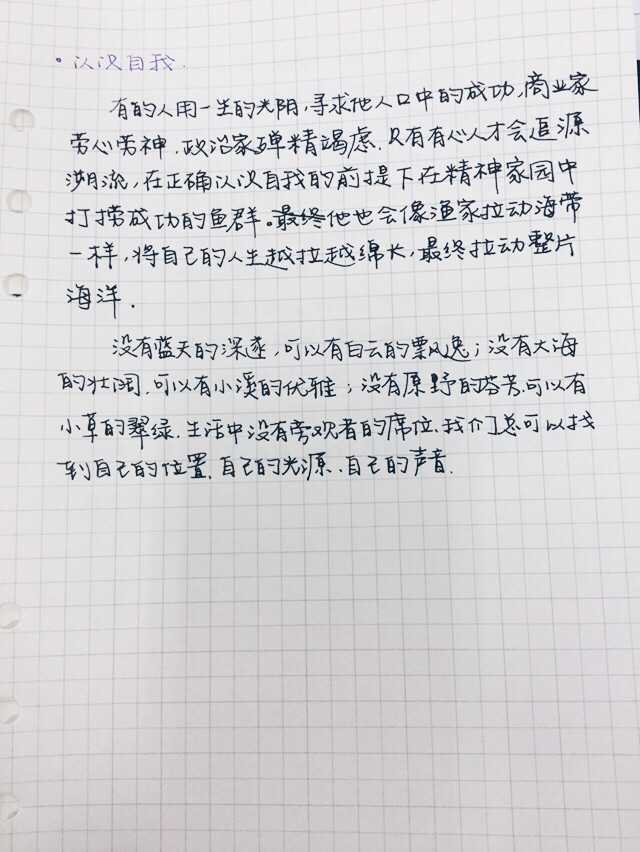 ·认识自我.
有的人用一生的光阴,寻求他人口中的成功,商业家
劳心劳神.政治家殚精竭虑.只有有心人才会追源
溯流,在正确认识自我的前提下在精神家园中
打捞成功的鱼群。最终他也会像渔家拉动海带
一样,将自己的人生越拉越绵长,最终拉动整片
海洋.
没有蓝天的深邃,可以有白云的飘逸;没有大海
的壮阔.可以有小溪的优雅;没有原野的芬芳.可以有
小草的翠绿.生活中没有旁观者的席位、我们总可以找
到自己的位置.自己的光源、自己的声音.